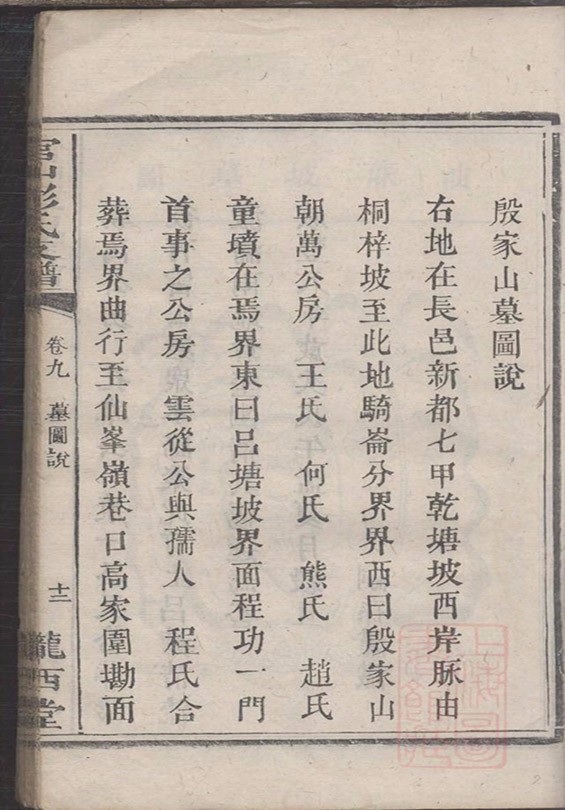 殷家山墓圖說
右地在長邑新都七甲乾塘坡西岸脉由
桐梓坡至此地騎崙分界界西曰殷家山
朝萬公房 王氏 何氏 熊氏 趙氏
童墳在焉界東曰呂塘坡界面程功一門
首事之公房 雲從公與孺人 程氏合
葬焉界曲行至仙峯嶺巷口高家圍勘面
官山彭氏支譜
卷九 墓圖說
十二
隴西堂